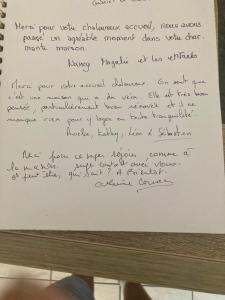 Merci pour votre chaleureux accueil, nous avons
passé un agréable moment dans votre char-
mante maison.
Nancy Magalie et les enfants
Merci pour votre accueil chaleureux. On sent que
c'est une maison qui a du vécu. Elle est très bien
pensée, particulièrement bien rénovée et il ne
manque rien pour y loger en toute tranquilité.
Kathy, Léon & Sébastien
Merci pour ce super séjour, comme à
la maison. super contact avec vous.
et peut être, qui sait? A Bientôt.
Catherine